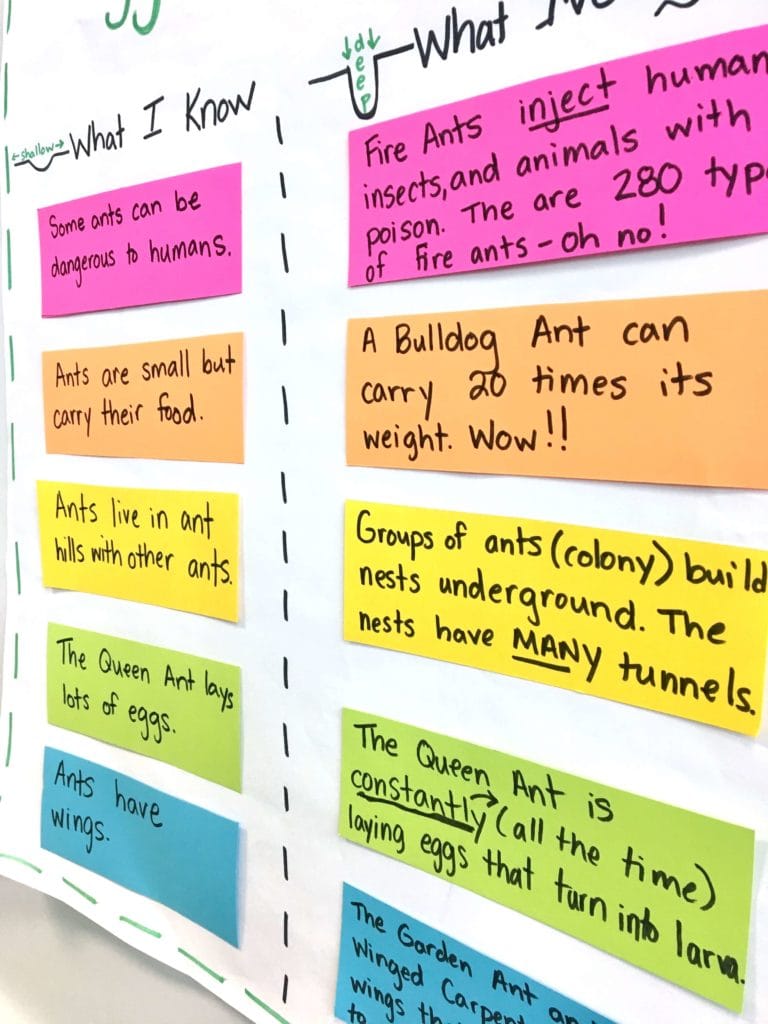 What I Know
←shallow→
Some ants can be
dangerous to humans.
Ants are small but
carry their food.
Ants live in ant
hills with other ants.
The Queen Ant lays
lots of eggs.
Ants have
wings.
What
↓d↓
e
e
p
Fire Ants inject
insects, and animals with
poison. The are 280
of fire ants - oh no!
A Bulldog Ant can
carry 20 times its
weight. Wow!!
Groups of ants (colony) build
nests underground. The
nests have MANY tunnels.
The Queen Ant is
constantly → (all the time)
laying eggs that turn into larva.
The Garden Ant
Winged
wings
to